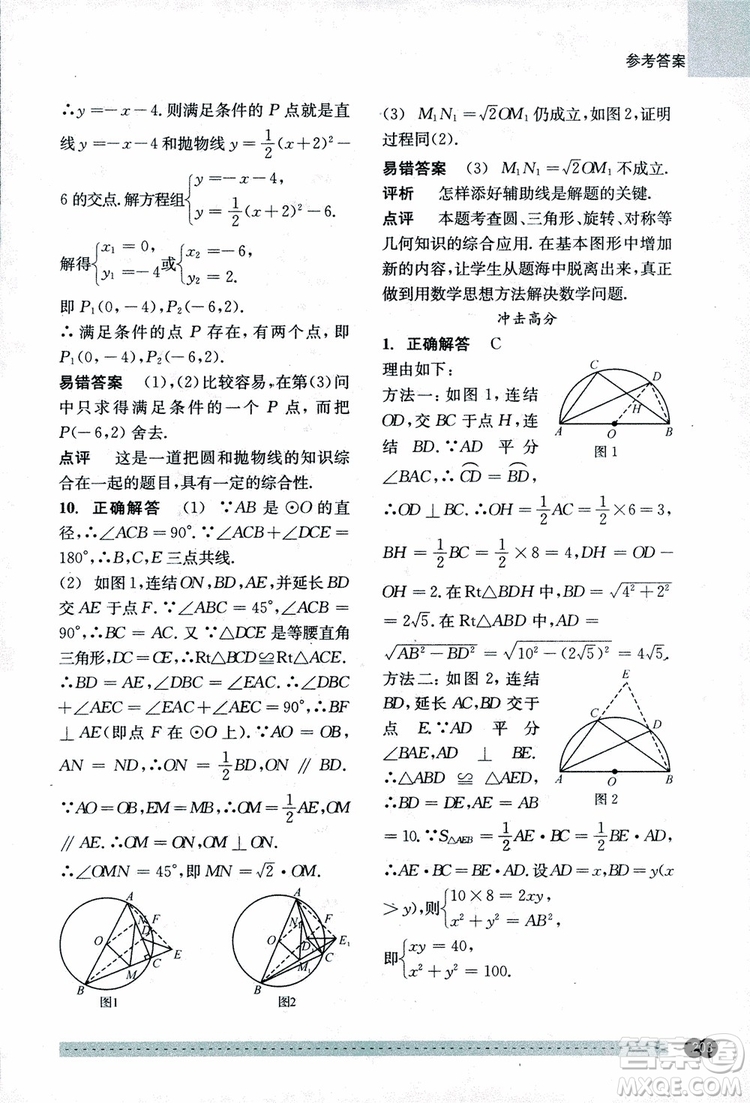 参考答案
∴y=-x-4.则满足条件的 P 点就是直
线 y=-x-4和抛物线 y=1/2(x+2)²-
6 的交点.解方程组{y=-x-4, y=1/2(x+2)²-6.
解得{x₁=0, y₁=-4 或{x₂=-6, y₂=2.
即 P₁(0,-4),P₂(-6,2).
∴ 满足条件的点 P 存在,有两个点,即
P₁(0,-4),P₂(-6,2).
易错答案 (1),(2)比较容易,在第(3)问
中只求得满足条件的一个 P 点,而把
P(-6,2)舍去.
点评 这是一道把圆和抛物线的知识综
合在一起的题目,具有一定的综合性.
10. 正确解答 (1) ∵AB 是 ⊙O 的直
径,∴∠ACB=90°.∵∠ACB+∠DCE=
180°,∴B,C,E 三点共线.
(2) 如图 1,连结ON,BD,AE,并延长 BD
交 AE 于点 F.∵∠ABC=45°,∠ACB=
90°,∴BC=AC.又∵△DCE 是等腰直角
三角形,DC=CE,∴Rt△BCD≌Rt△ACE.
∴BD=AE,∠DBC=∠EAC.∴∠DBC
+∠AEC=∠EAC+∠AEC=90°,∴BF
⊥AE(即点 F 在 ⊙O 上).∵AO=OB,
AN=ND,∴ON=1/2BD,ON∥BD.
∵AO=OB,EM=MB,∴OM=1/2AE,OM
∥AE.∴OM=ON,OM⊥ON.
∴∠OMN=45°,即 MN=√2·OM.
A
N
F
O
D
C
E
M
B
图1
A
N₁
F
O
D₁
E₁
C
M₁
B
图2
(3) M₁N₁=√2OM₁仍成立,如图 2,证明
过程同(2).
易错答案 (3) M₁N₁=√2OM₁不成立.
评析 怎样添好辅助线是解题的关键.
点评 本题考查圆、三角形、旋转、对称等
几何知识的综合应用.在基本图形中增加
新的内容,让学生从题海中脱离出来,真正
做到用数学思想方法解决数学问题.
冲击高分
1. 正确解答 C
理由如下:
方法一:如图 1,连结
OD,交 BC 于点 H,连
结 BD.∵AD 平分
∠BAC,∴⌒CD=⌒BD,
C
D
H
A
O
B
图 1
∴OD⊥BC.∴OH=1/2AC=1/2×6=3,
BH=1/2BC=1/2×8=4,DH=OD-
OH=2.在 Rt△BDH 中,BD=√(4²+2²)
=2√5.在 Rt△ABD 中,AD=
√(AB²-BD²)=√(10²-(2√5)²)=4√5.
方法二:如图 2,连结
BD,延长 AC,BD 交于
点 E.∵AD 平分
∠BAE,AD⊥BE.
∴△ABD≌△AED,
∴BD=DE,AE=AB
E
C
D
A
B
图 2
=10.∵S△AEB=1/2AE·BC=1/2BE·AD,
∴AE·BC=BE·AD.设 AD=x,BD=y(x
>y),则{10×8=2xy, x²+y²=AB²,
即{xy=40, x²+y²=100.
MXQE.COM